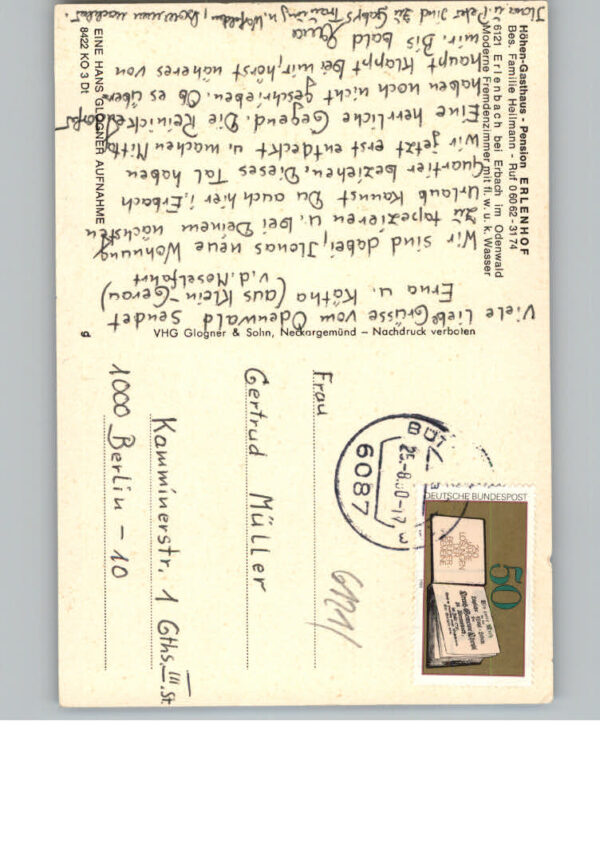 Höhen-Gasthaus - Pension ERLENHOF
Bes. Familie Heilmann - Ruf 0 60 62 - 31 74
6121 Erlenbach bei Erbach im Odenwald
Moderne Fremdenzimmer mit fl. w. u. k. Wasser
EINE HANS GLOGNER AUFNAHME
8422 KO 3 Dt
VHG Glogner & Sohn, Neckargemünd – Nachdruck verboten
g
Viele liebe Grüsse vom Odenwald sendet
Erna u. Kätha (aus Klein-Gerau)
v.d. Moselfahrt
Wir sind dabei, Ilonas neue Wohnung
zu tapezieren u. bei Deinem nächsten
Urlaub kannst Du auch hier i. Erbach
Quartier beziehen. Dieses Tal haben
wir jetzt erst entdeckt u. machen
Eine herrliche Gegend. Die Reinickes
haben noch nicht geschrieben. Ob es über-
haupt klappt bei mir, hörst näheres von
mir. Bis bald
Ilona u. Peter sind zu Gabys Trauung
DEUTSCHE BUNDESPOST
50
250
JAHRE
LOSUNGEN
DER
BRÜDER
GEMEINE
6087
-8.80-17
Frau
Gertrud Müller
Kamminerstr. 1 Gths. III. St.
1000 Berlin - 10